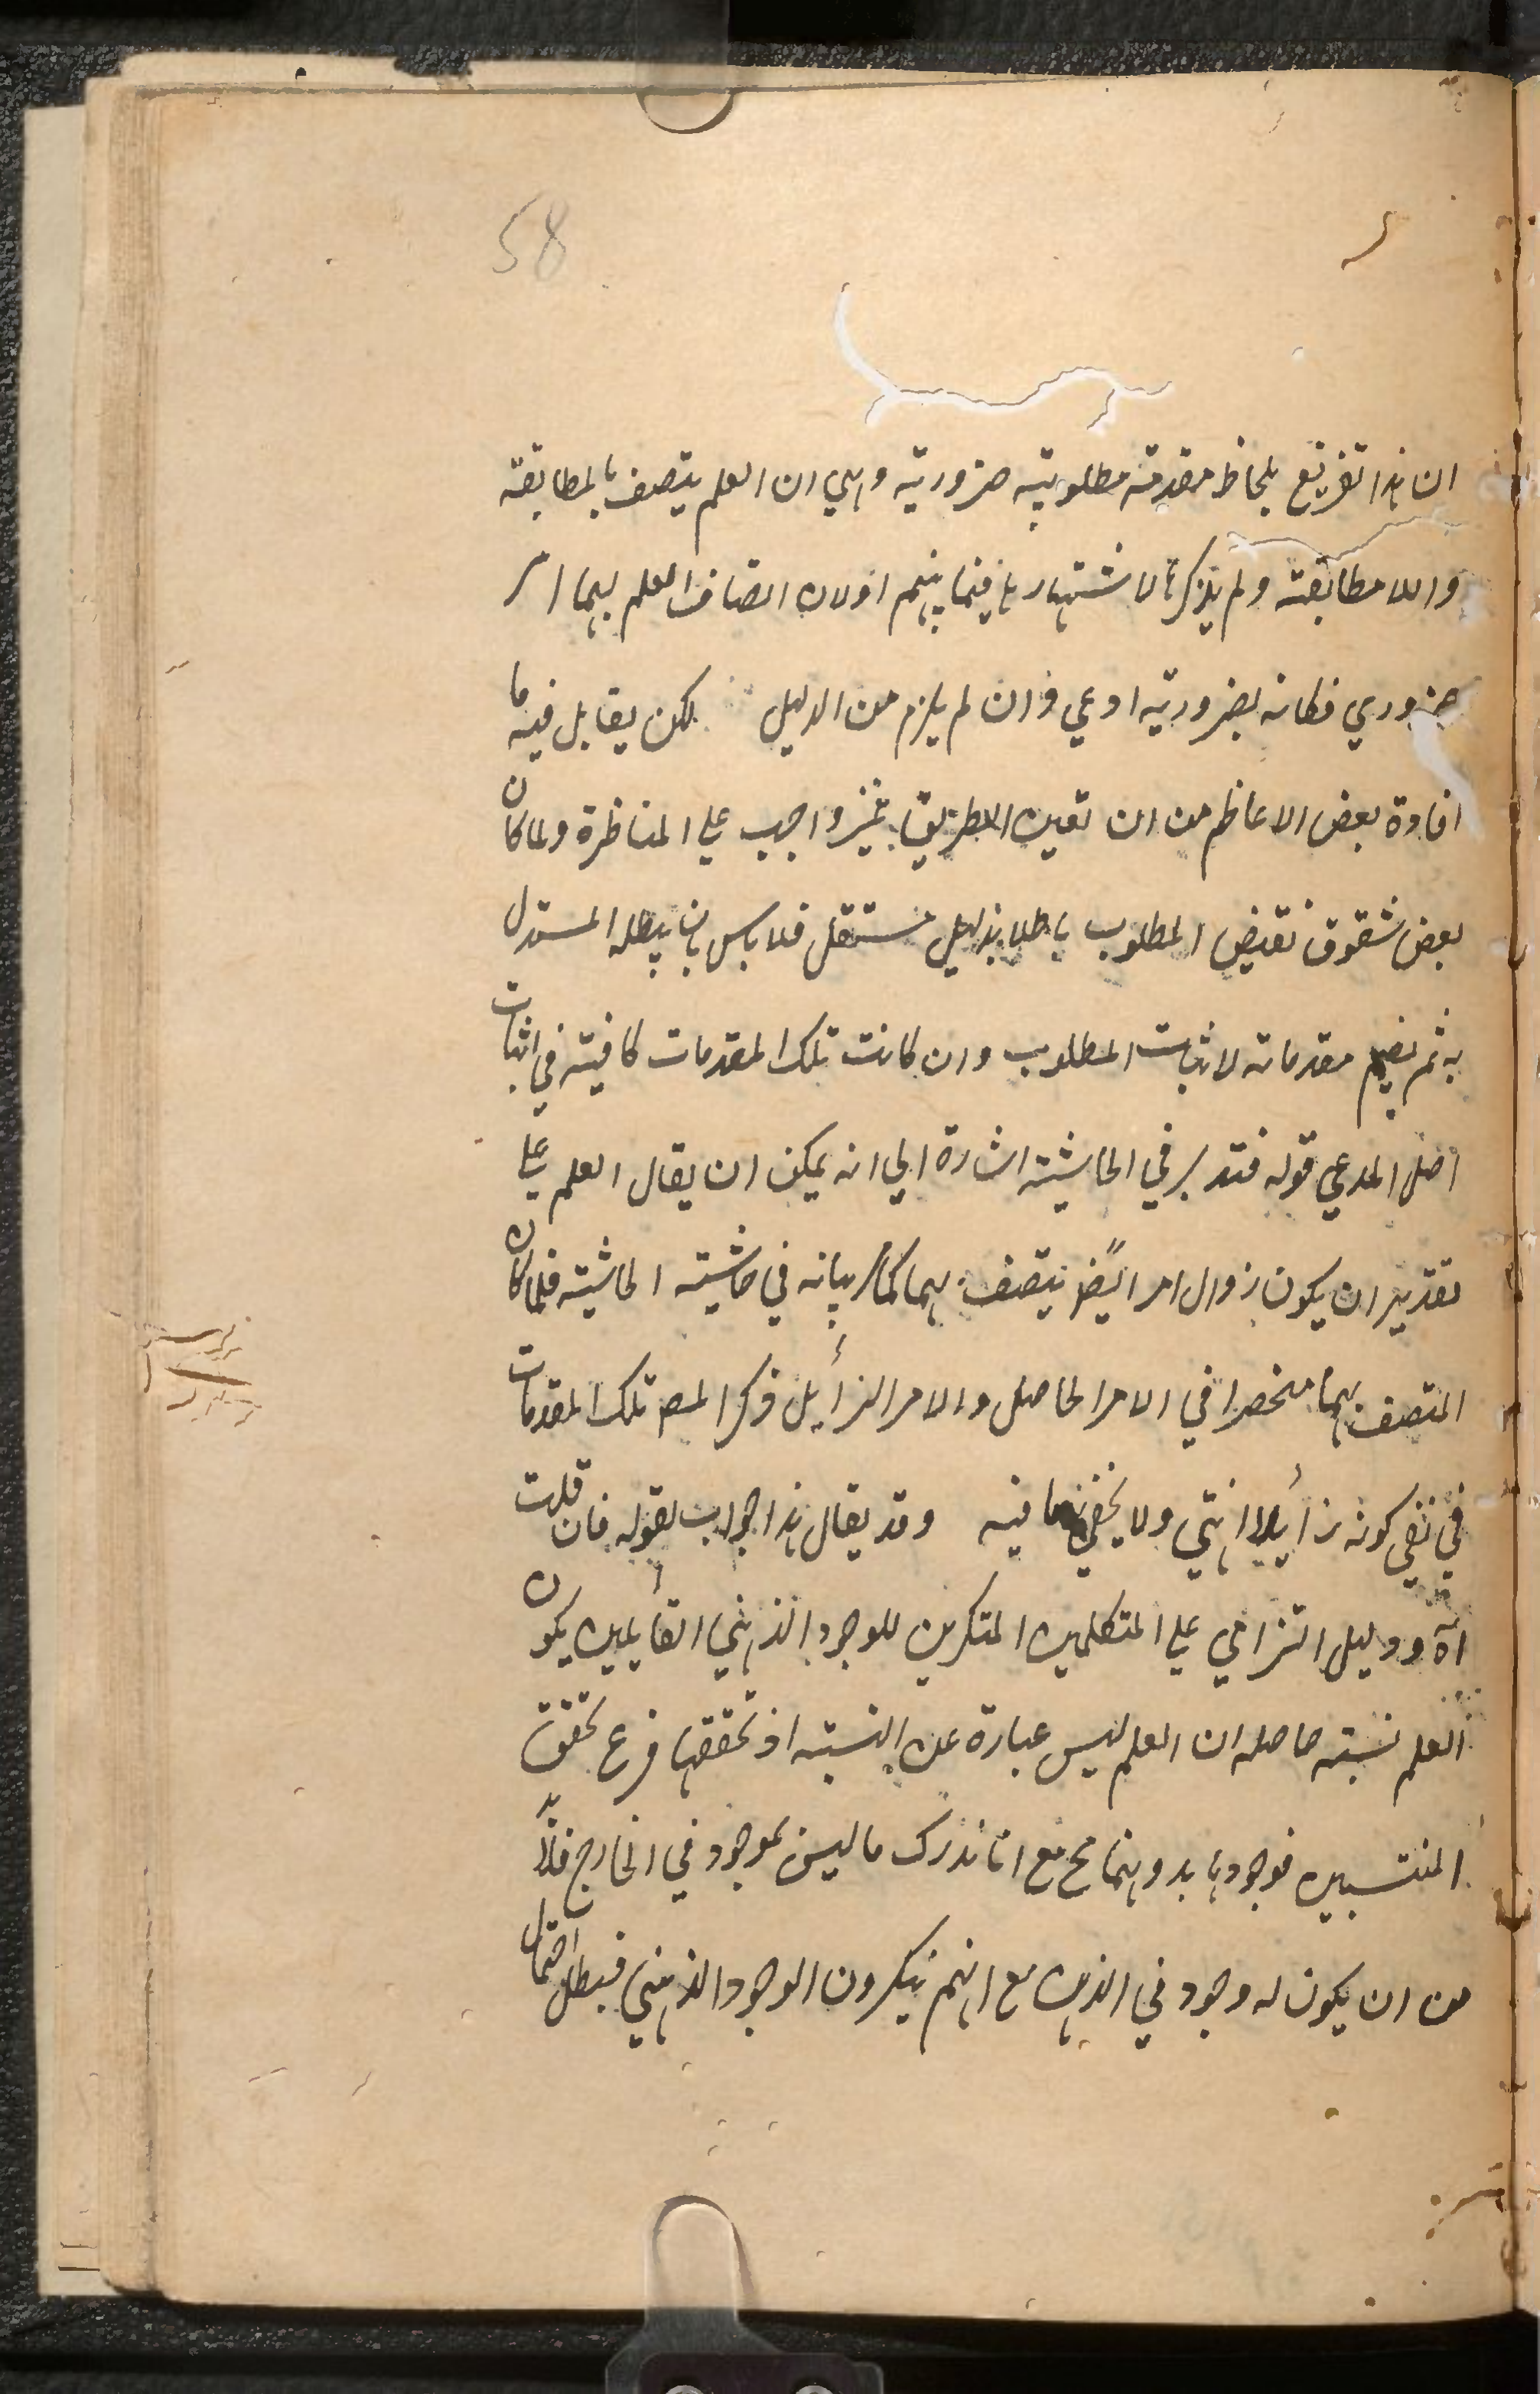 58
ان هذا تفريع بلحاظ مقدمة مطلوبية ضرورية وهي ان العلم يتصف بالمطابقة
واللامطابقة ولم يذكرها لاشتهارها فيما بينهم اولان اتصاف العلم بهما امر
ضروري فكانه بضرورية ادعي وان لم يلزم من الدليل لكن يقابل فيه ما
افادة بعض الاعاظم من ان تعين الطريق غير واجب علي المناظرة ولما كان
بعض شقوق نقيض المطلوب باطلا بدليل مستقل فلا باس بان يبطله المستدل
به ثم يضم مقدماته لاثبات المطلوب وان كانت تلك المقدمات كافية في اثبات
اصل المدعي قوله فتدبر في الحاشية اشارة الي انه يمكن ان يقال العلم علي
تقدير ان يكون زوال امر ايضًا يتصف بهما كما مر بيانه في حاشية الحاشية فلما كان
المتصف بهما منحصرا في الامر الحاصل والامر الزأيل ذكر المصـ تلك المقدمات
في نفي كونه زأيلا انتهي ولا يخفي ما فيه وقد يقال هذا جواب بقوله فان قلت
اه ودليل التزامي علي المتكلمين المنكرين للوجود الذهني القأيلين بكون
العلم نسبة حاصله ان العلم ليس عبارة عن النسبة اذ تحققها فرع تحقق
المنتسبين فوجودها بدونهما مح مع انا ندرك ما ليس بموجود في الخارج فلابد
من ان يكون له وجود في الذهن مع انهم ينكرون الوجود الذهني فبطل احتمال